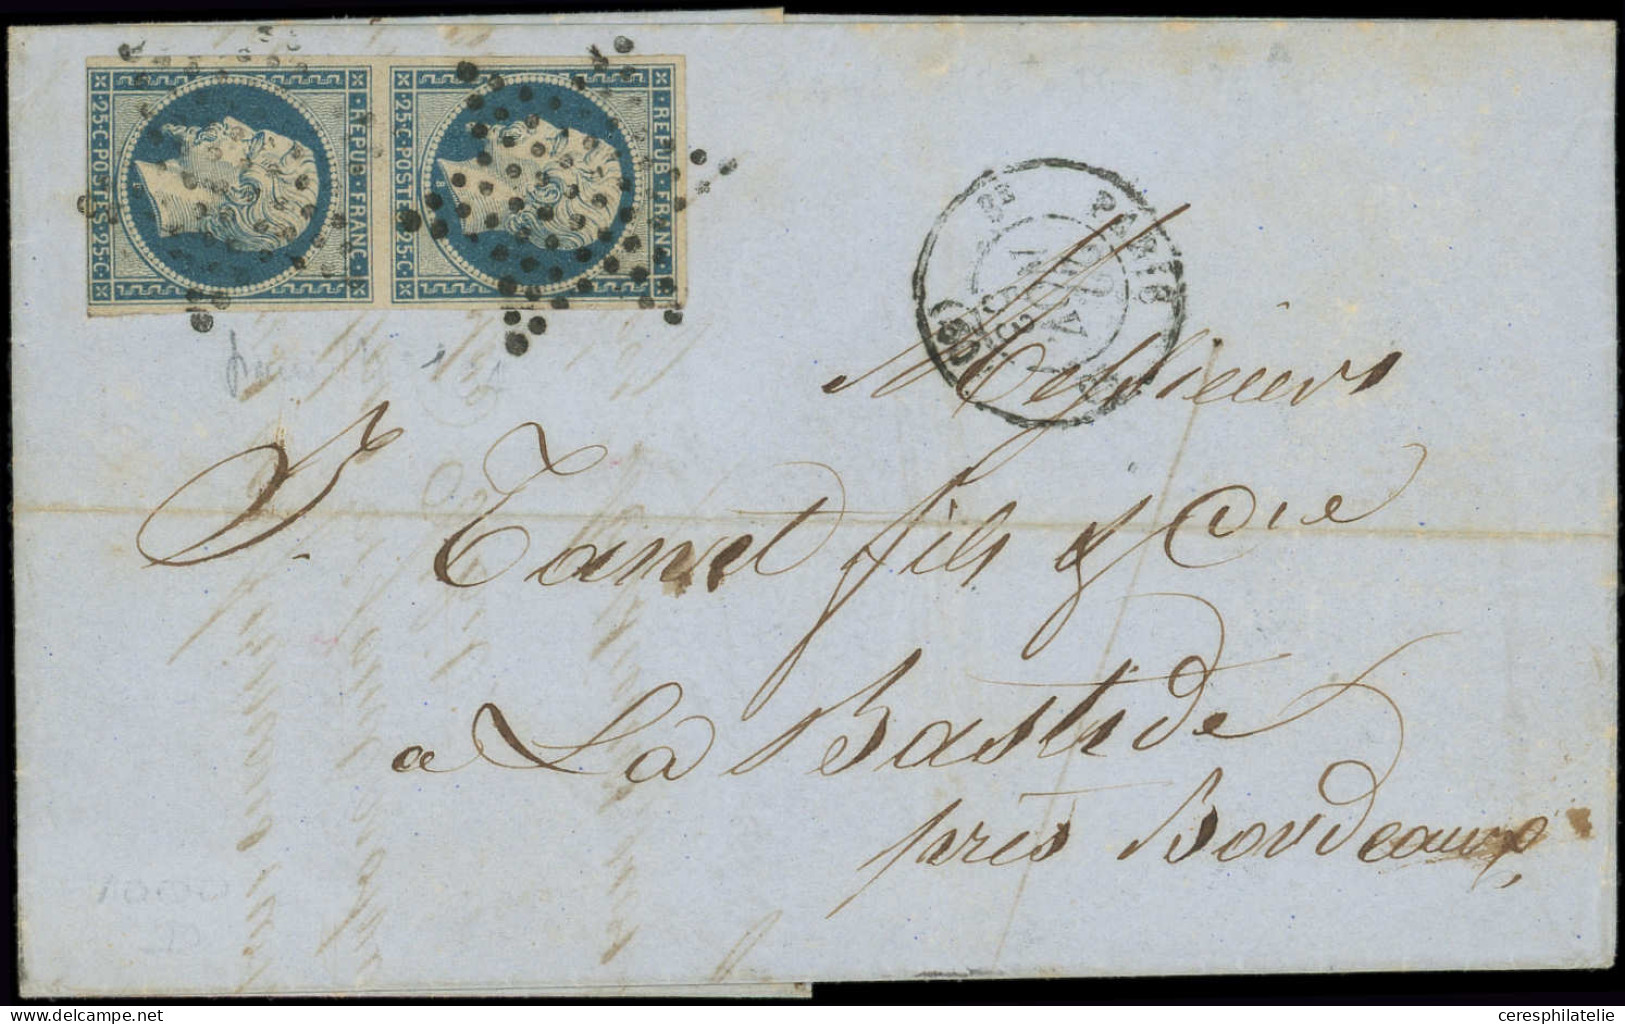 REPUB · FRANC ·
· 25 · C · POSTES · 25 · C ·
REPUB · FRANC ·
· 25 · C · POSTE · 25 · C ·
PARIS
(60)
Messieurs
J. Tanet fils & Cie
a La Bastide
près Bordeaux
delcampe.net
ceresphilatelie